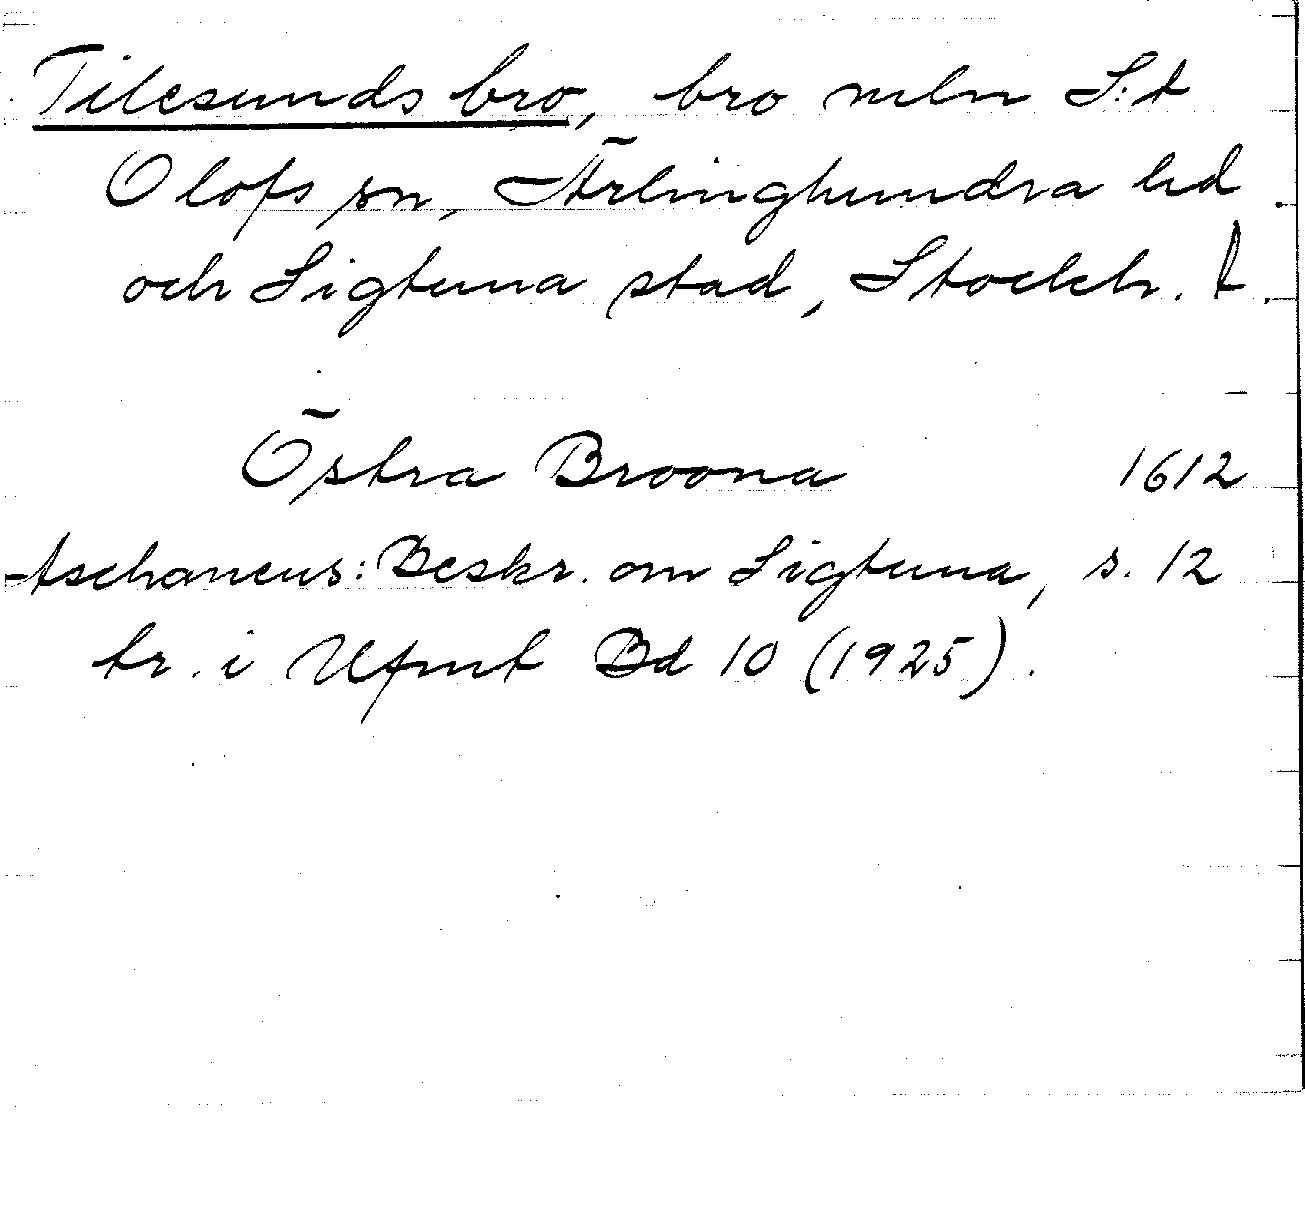 Tilesunds bro, bro mln S:t
Olofs sn, Ärlinghundra hd
och Sigtuna stad, Stockh. l.
Östra Broona 1612
Aschaneus: Beskr. om Sigtuna, s. 12
tr. i Ufmt Bd 10 (1925).